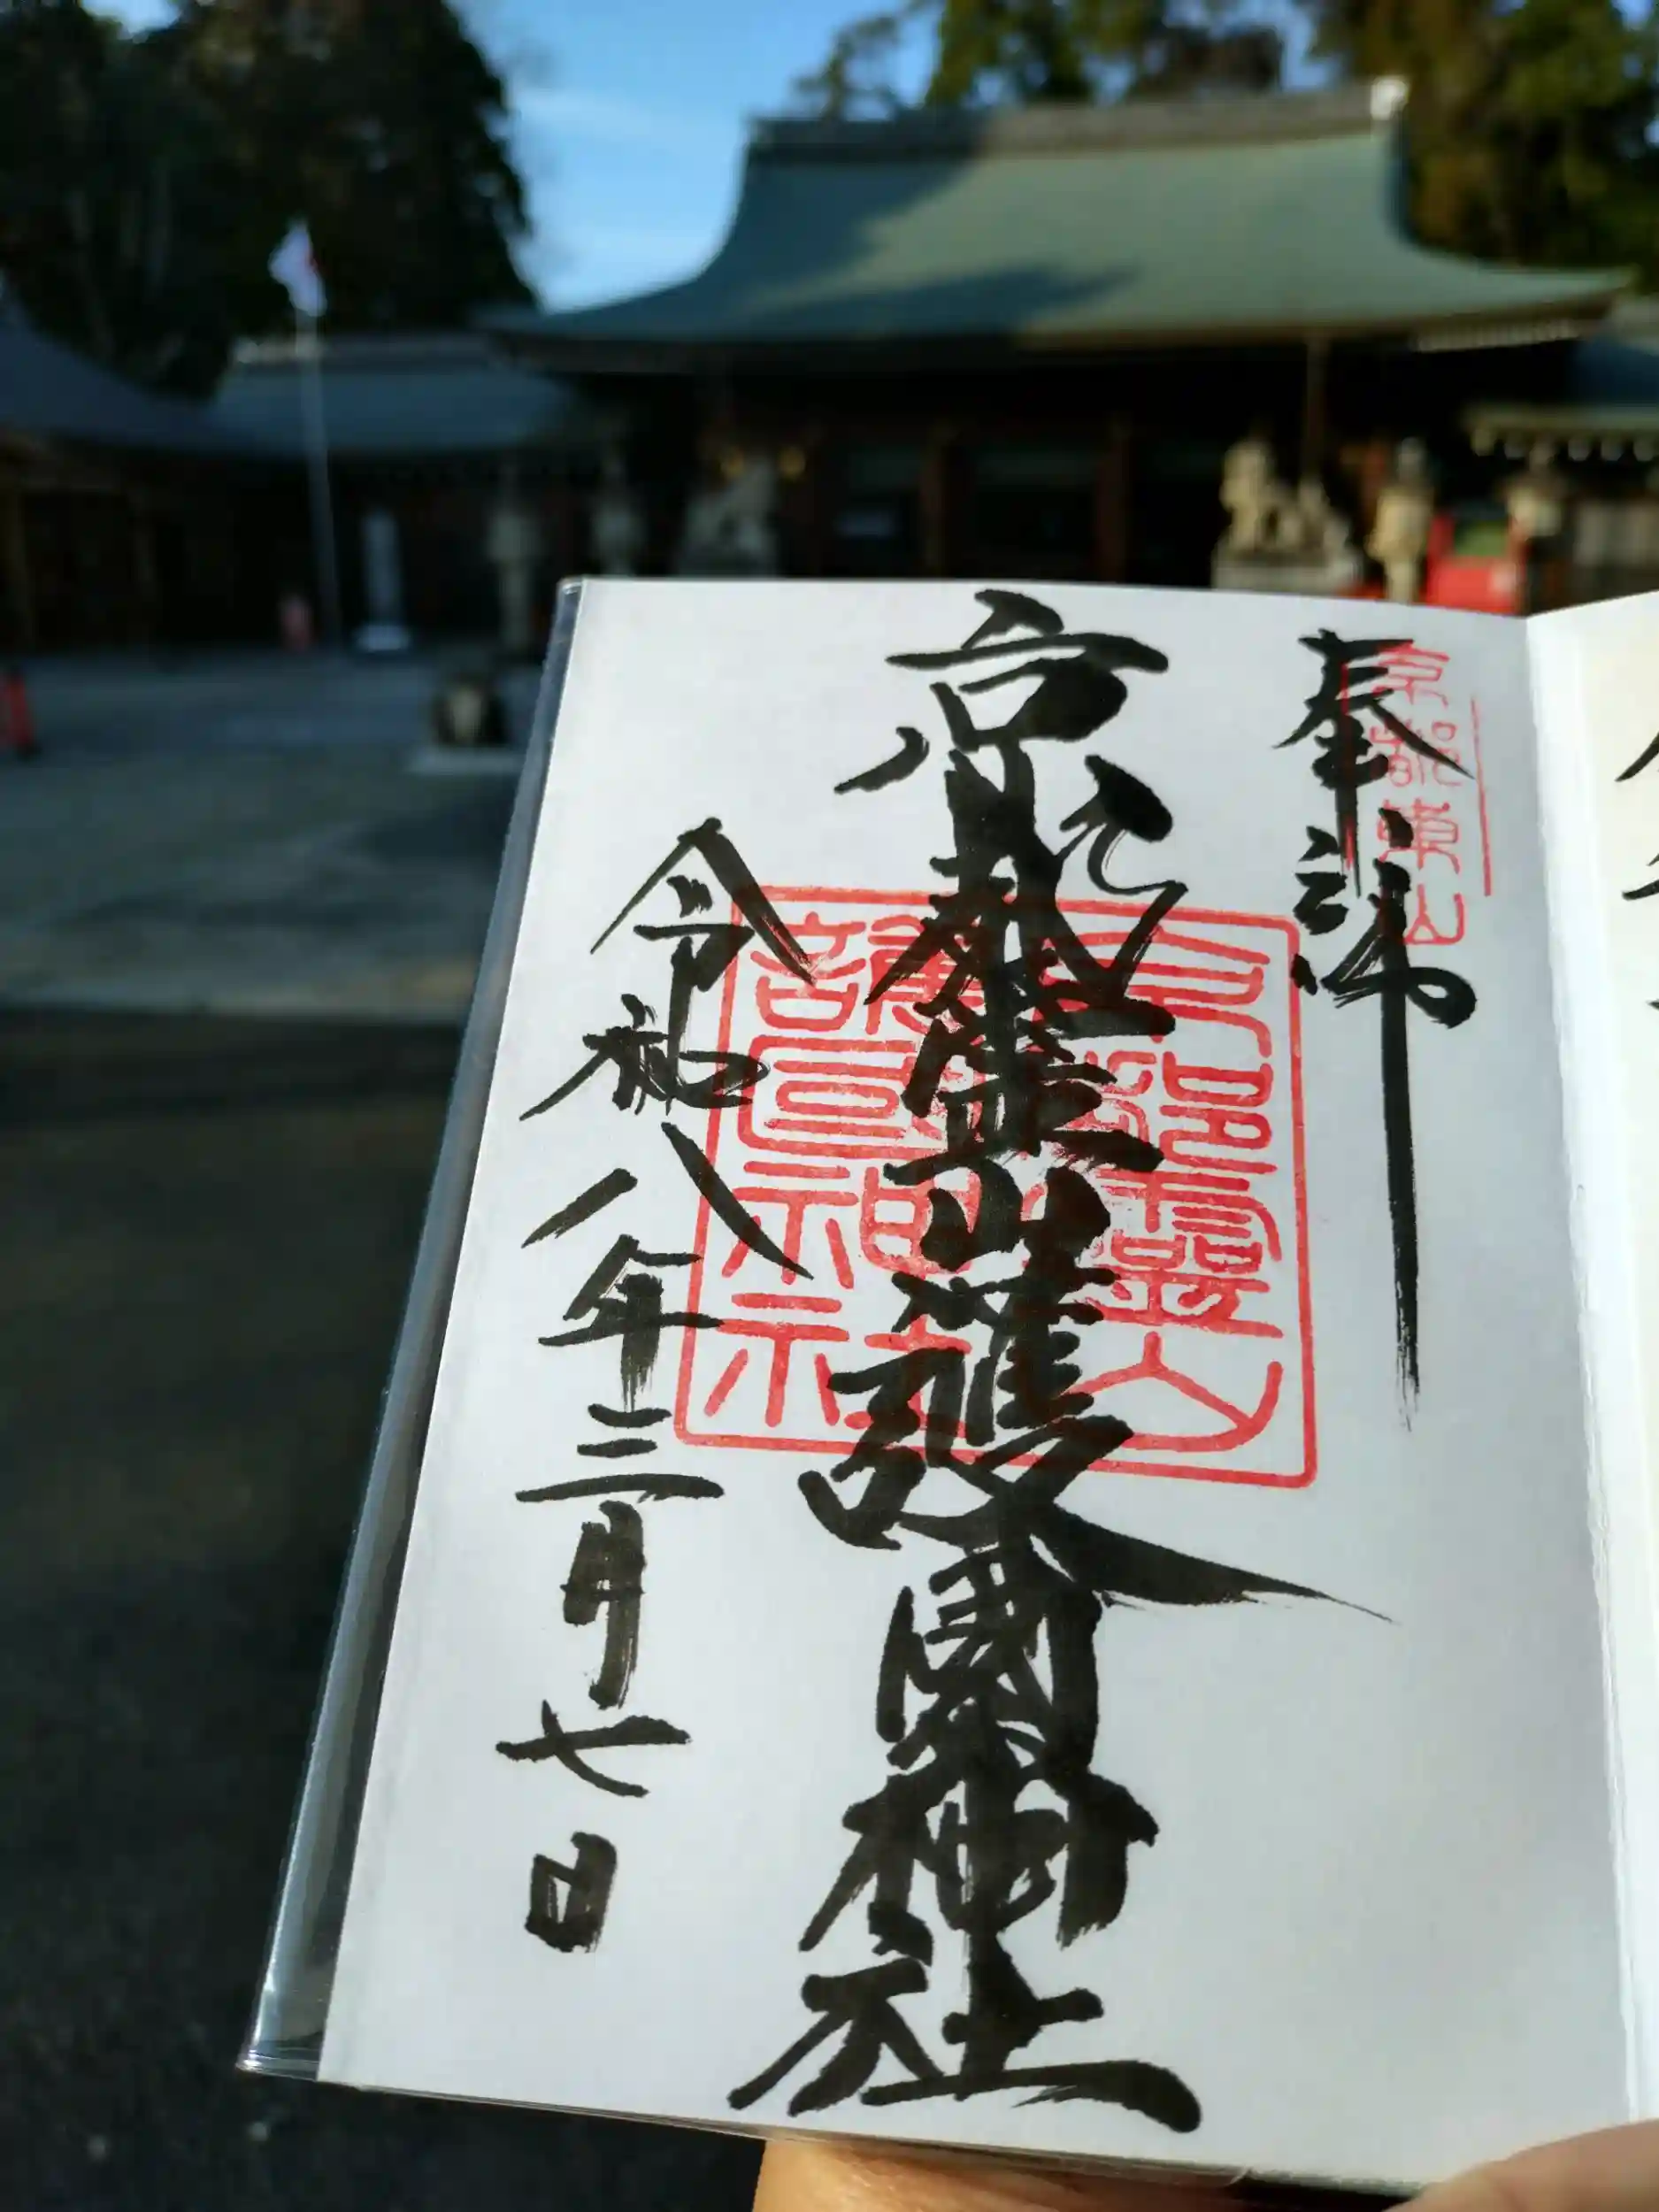 奉拝
京都東山
京都霊山護國神社
京都霊山護国神社
令和八年三月七日